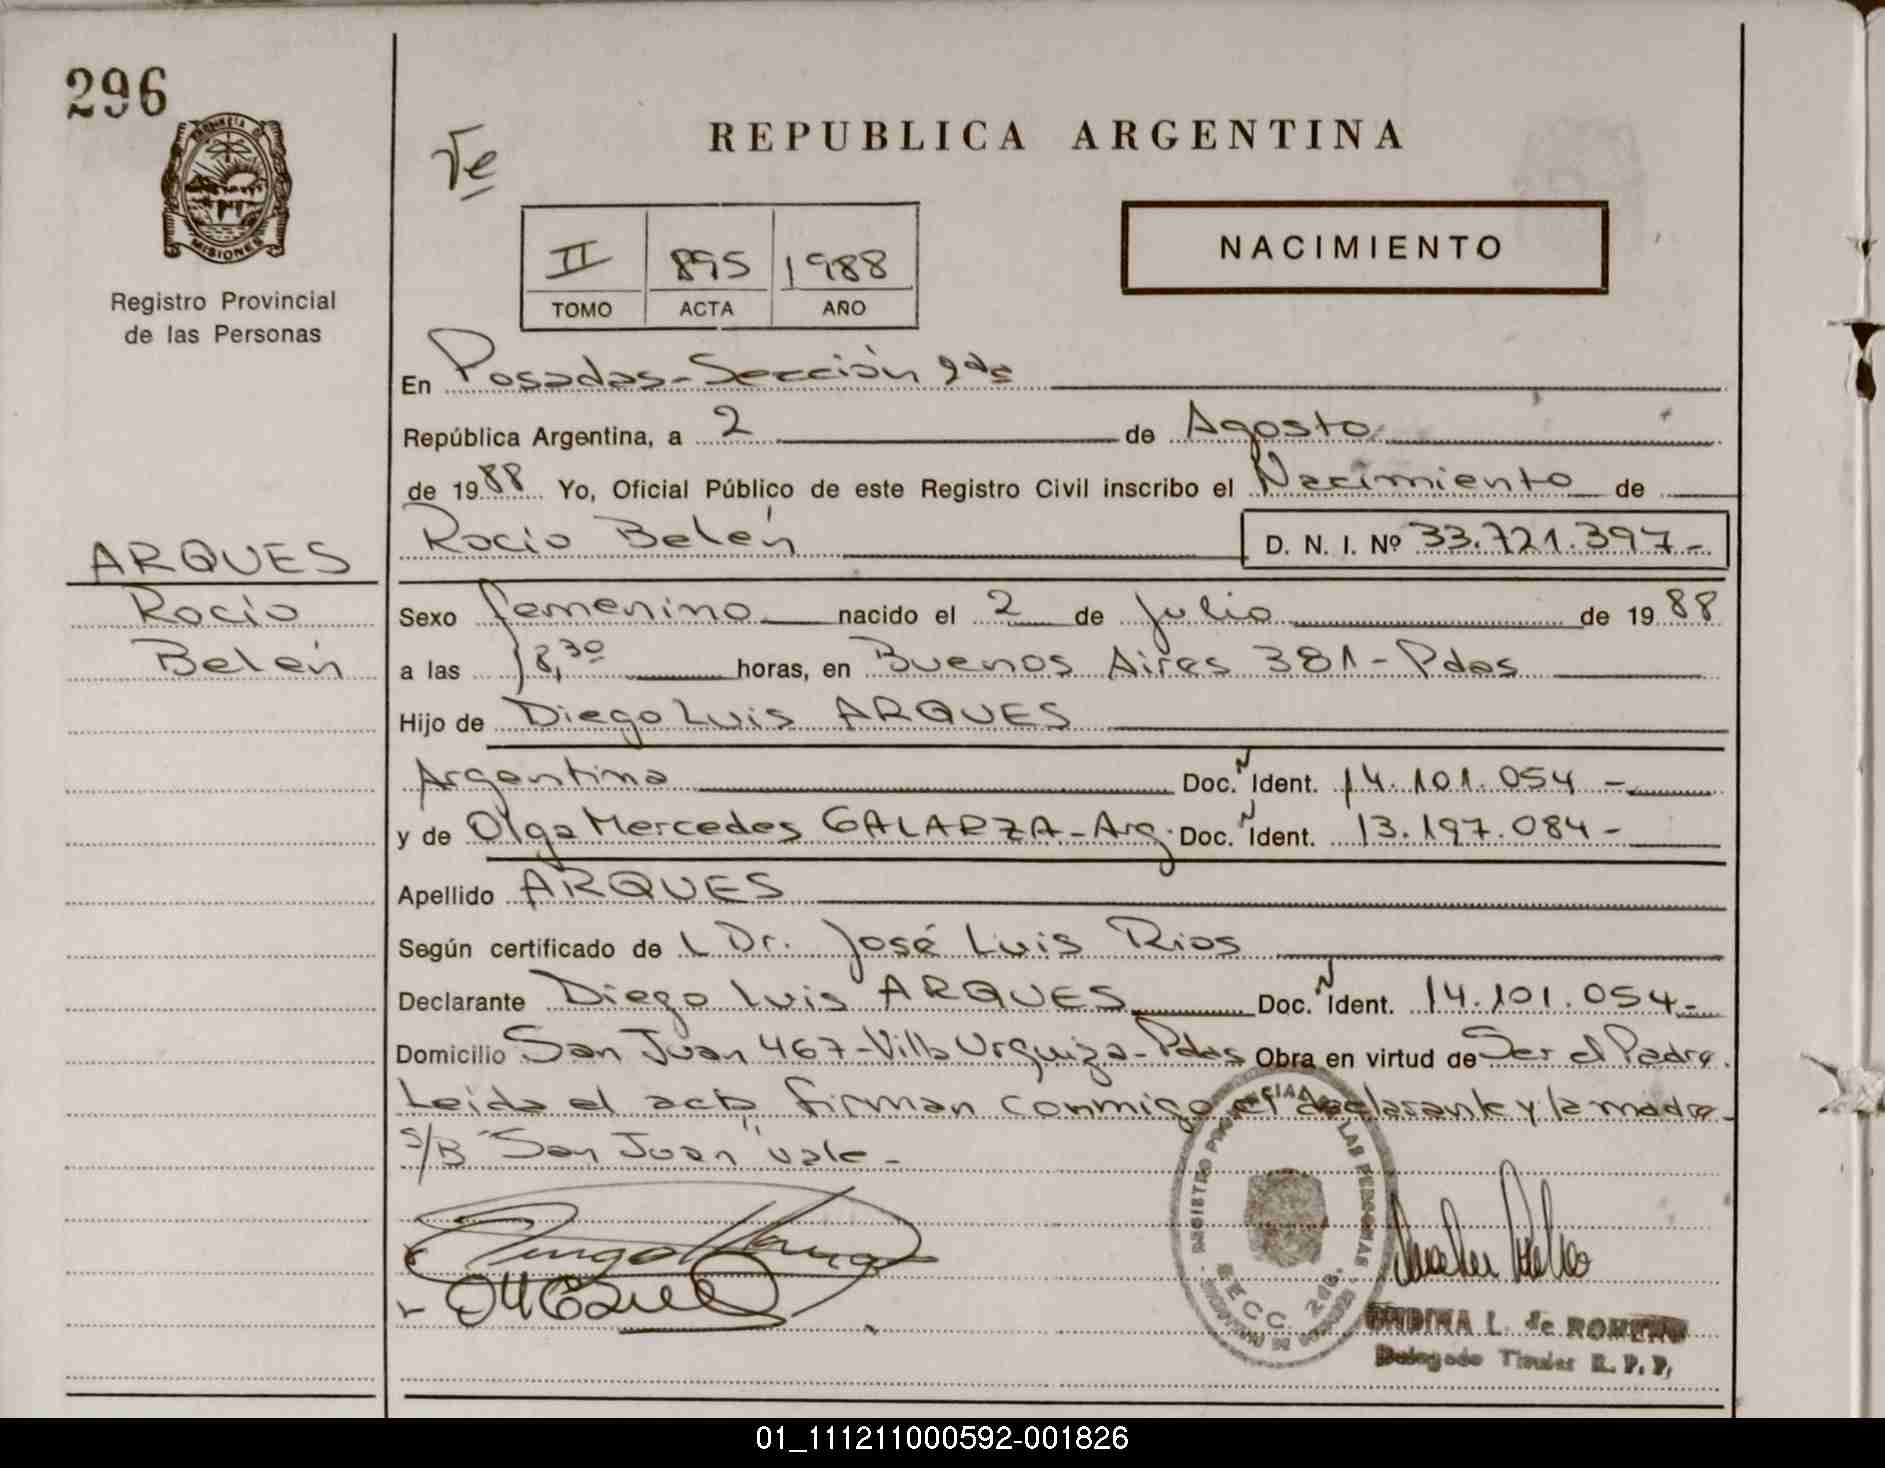 296
PROVINCIA DE
MISIONES
Registro Provincial
de las Personas
REPUBLICA ARGENTINA
NACIMIENTO
II 895 1988
TOMO ACTA AÑO
En Posadas-Sección 2da
República Argentina, a 2 de Agosto
de 1988 Yo, Oficial Público de este Registro Civil inscribo el Nacimiento de
Rocio Belén D. N. I. Nº 33.721.397-
ARQUES
Rocío
Belén
Sexo femenino nacido el 2 de Julio de 1988
a las 18,30 horas, en Buenos Aires 381-Pdas
Hijo de Diego Luis ARQUES
Argentina Doc. N Ident. 14.101.054-
y de Olga Mercedes GALARZA-Arg. Doc. N Ident. 13.197.084-
Apellido ARQUES
Según certificado de L Dr. José Luis Rios
Declarante Diego Luis ARQUES Doc. N Ident. 14.101.054-
Domicilio San Juan 467-Villa Urquiza-Pdas Obra en virtud de Ser el Padre.
Leida el acta firman conmigo el declarante y la madre-
S/B "San Juan" vale-
REGISTRO PROVINCIAL DE LAS PERSONAS
SECC. 2da.
L. de ROMERO
Delegado Titular R. P. P.
01_111211000592-001826